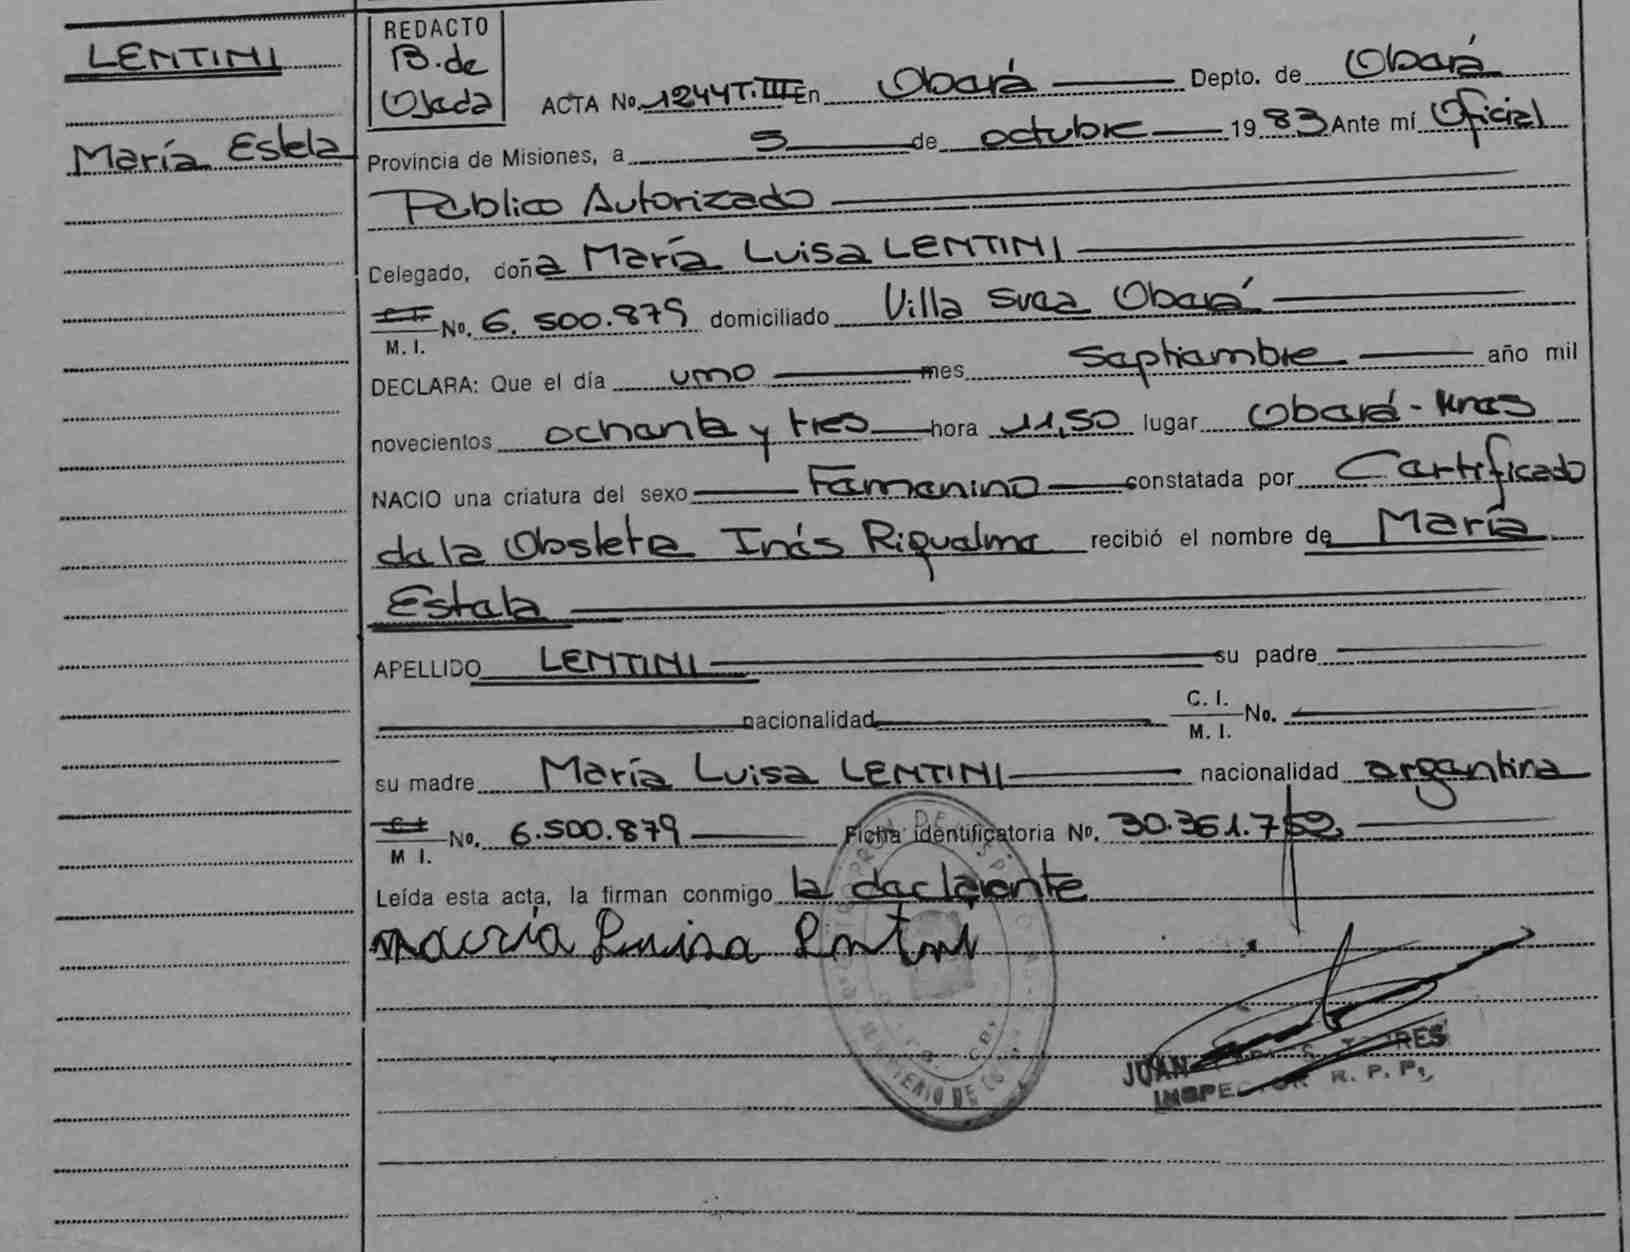 LENTINI
María Estela
REDACTO
B. de
Ojeda
ACTA No. 1244 T. III En Oberá Depto. de Oberá
Provincia de Misiones, a 5 de octubre 1983 Ante mí Oficial
Público Autorizado
Delegado, doña María Luisa LENTINI
C.I.
M. I. No. 6.500.879 domiciliado Villa Svea Oberá
DECLARA: Que el día uno mes Septiembre año mil
novecientos ochenta y tres hora 11,50 lugar Oberá - Mnes
NACIO una criatura del sexo Femenino constatada por Certificado
de la Obstetra Inés Riquelme recibió el nombre de María
Estela
APELLIDO LENTINI su padre
nacionalidad C. I.
M. I. No.
su madre María Luisa LENTINI nacionalidad argentina
C.I.
M I. No. 6.500.879 Ficha identificatoria No. 30.361.752
Leída esta acta, la firman conmigo la declarante
María Luisa Lentini
JUAN TORRES
INSPECTOR R. P. P.